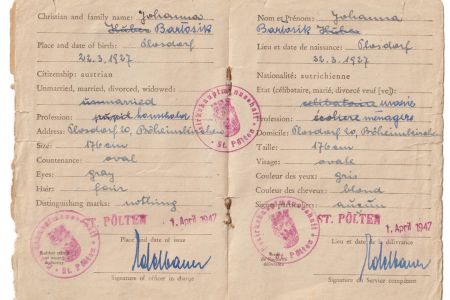 Christian and family name: Johanna
Huber Bartosik
Place and date of births: Plosdorf
22.3.1927
Citizenship: austrian
Unmarried, married, divorced, widowed:
unmarried
Profession: household
Address: Plosdorf 20, Böheimkirchen
Size: 176 cm
Countenance: oval
Eyes: gray
Hair: fair
Distinguishing marks: nothing
ST. PÖLTEN 1. April 1947
Place and date of issue
Edelbauer
Signature of officer in charge
Bezirkshauptmannschaft
St. Pölten
Nom et Prénoms: Johanna
Bartosik Huber
Lieu et date de naissance: Plosdorf
22.3.1927
Nationalité: autrichienne
Etat (célibataire, marié, divorcé veuf [ve]):
célibataire mariée
Profession: écolière ménagère
Domicile: Plosdorf 20, Böheimkirchen
Taille: 176 cm
Visage: ovale
Couleur des yeux: gris
Couleur des cheveux: blond
Signes particuliers: aucun
ST. PÖLTEN 1. April 1947
Lieu et date de la délivrance
Edelbauer
Signature du Service compétent